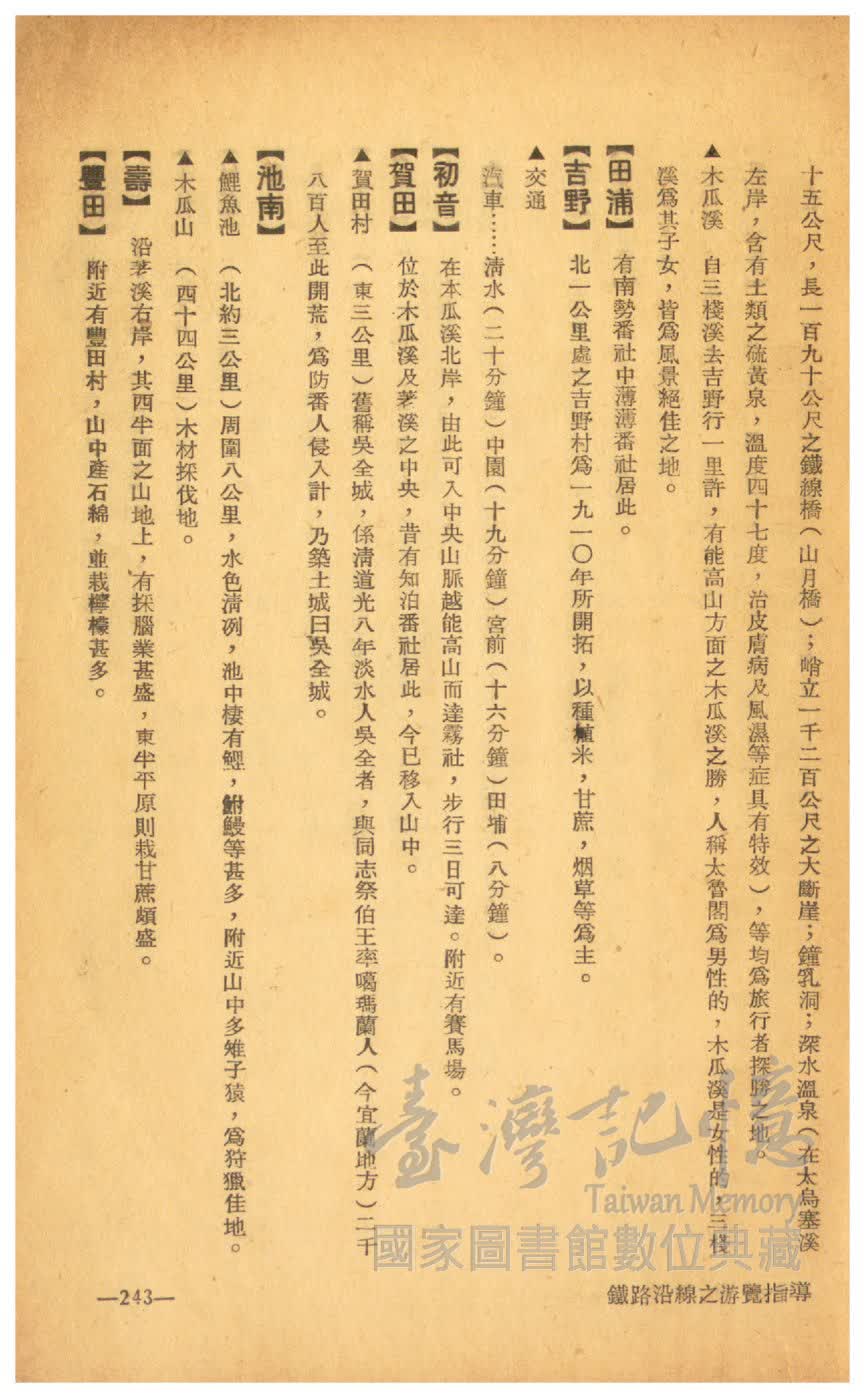 十五公尺，長一百九十公尺之鐵線橋（山月橋）；峭立一千二百公尺之大斷崖；鐘乳洞；深水溫泉（在太烏塞溪
左岸，含有土類之硫黃泉，溫度四十七度，治皮膚病及風濕等症具有特效），等均爲旅行者探勝之地。
▲木瓜溪　自三棧溪去吉野行一里許，有能高山方面之木瓜溪之勝，人稱太魯閣爲男性的，木瓜溪是女性的，三棧
溪爲其子女，皆爲風景絕佳之地。
【田浦】　有南勢番社中薄薄番社居此。
【吉野】　北一公里處之吉野村爲一九一〇年所開拓，以種植米，甘蔗，烟草等爲主。
▲交通
汽車……清水（二十分鐘）中園（十九分鐘）宮前（十六分鐘）田埔（八分鐘）。
【初音】　在本瓜溪北岸，由此可入中央山脈越能高山而達霧社，步行三日可達。附近有賽馬場。
【賀田】　位於木瓜溪及荖溪之中央，昔有知泊番社居此，今已移入山中。
▲賀田村　（東三公里）舊稱吳全城，係淸道光八年淡水人吳全者，與同志祭伯王率噶瑪蘭人（今宜蘭地方）二千
八百人至此開荒，爲防番人侵入計，乃築土城曰吳全城。
【池南】
▲鯉魚池　（北約三公里）周圍八公里，水色淸冽，池中棲有鯉，鮒鰻等甚多，附近山中多雉子猿，爲狩獵佳地。
▲木瓜山　（四十四公里）木材採伐地。
【壽】　沿荖溪右岸，其西半面之山地上，有採腦業甚盛，東半平原則栽甘蔗頗盛。
【豐田】　附近有豐田村，山中產石綿，並栽檸檬甚多。
鐵路沿線之游覽指導
—243—
臺灣記憶
Taiwan Memory
國家圖書館數位典藏